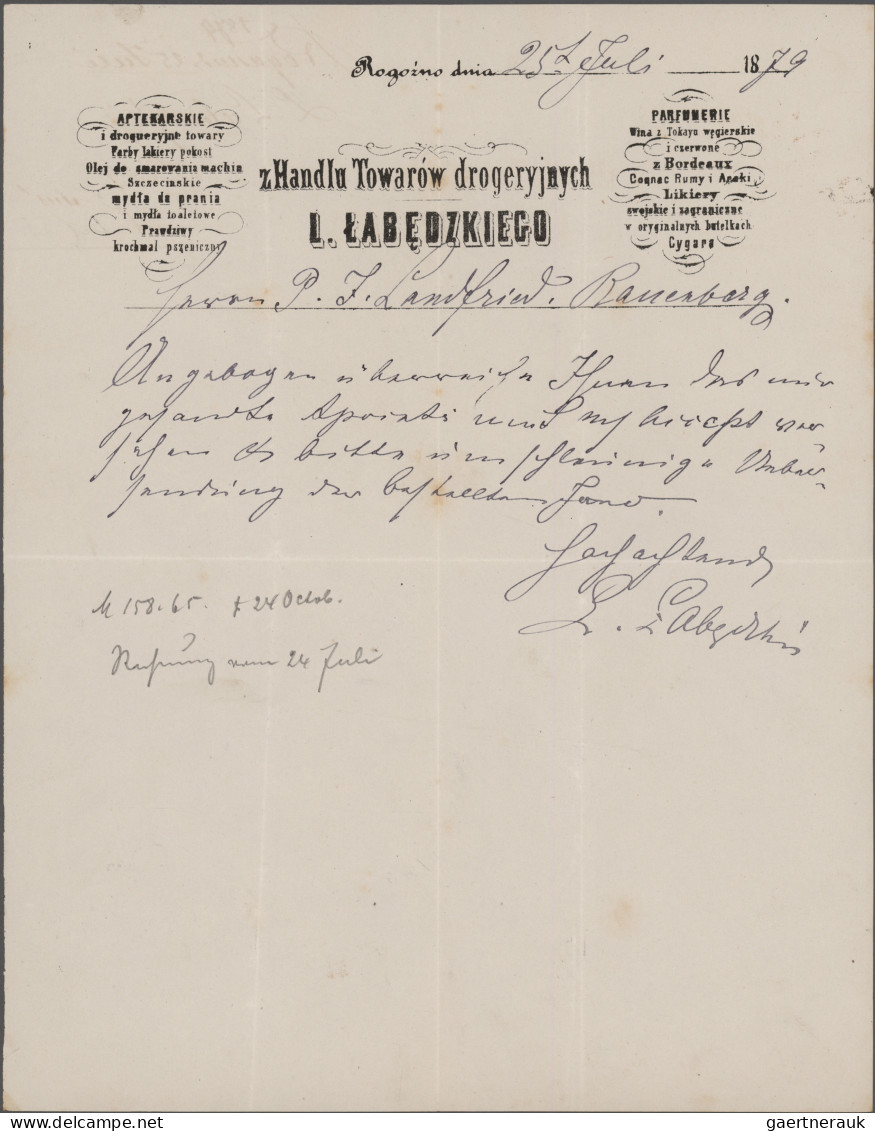 Rogoźno dnia 25t Juli 1879
APTEKARSKIE
i drogueryjne towary
Farby lakiery pokost
Olej do smarowania machin
Szczecinskie
mydła do prania
i mydła toaletowe
Prawdziwy
krochmal pszeniczny
z Handlu Towarów drogeryjnych
L. ŁABĘDZKIEGO
PARFUMERIE
Wina z Tokayu węgierskie
i czerwone
z Bordeaux
Cognac Rumy i Araki
Likiery
swojskie i zagraniczne
w oryginalnych butelkach
Cygara
Herrn P. J. Landfried. Rauenberg.
Angebogen überreiche Ihnen das mir
gesandte Apoints mit versehen
& bitte um schleunige Ueber-
sendung der bestellten
Hochachtend
L. Łabędzki
M 158.65. 24 Octob.
Rechnung vom 24 Juli
gaertnerauk